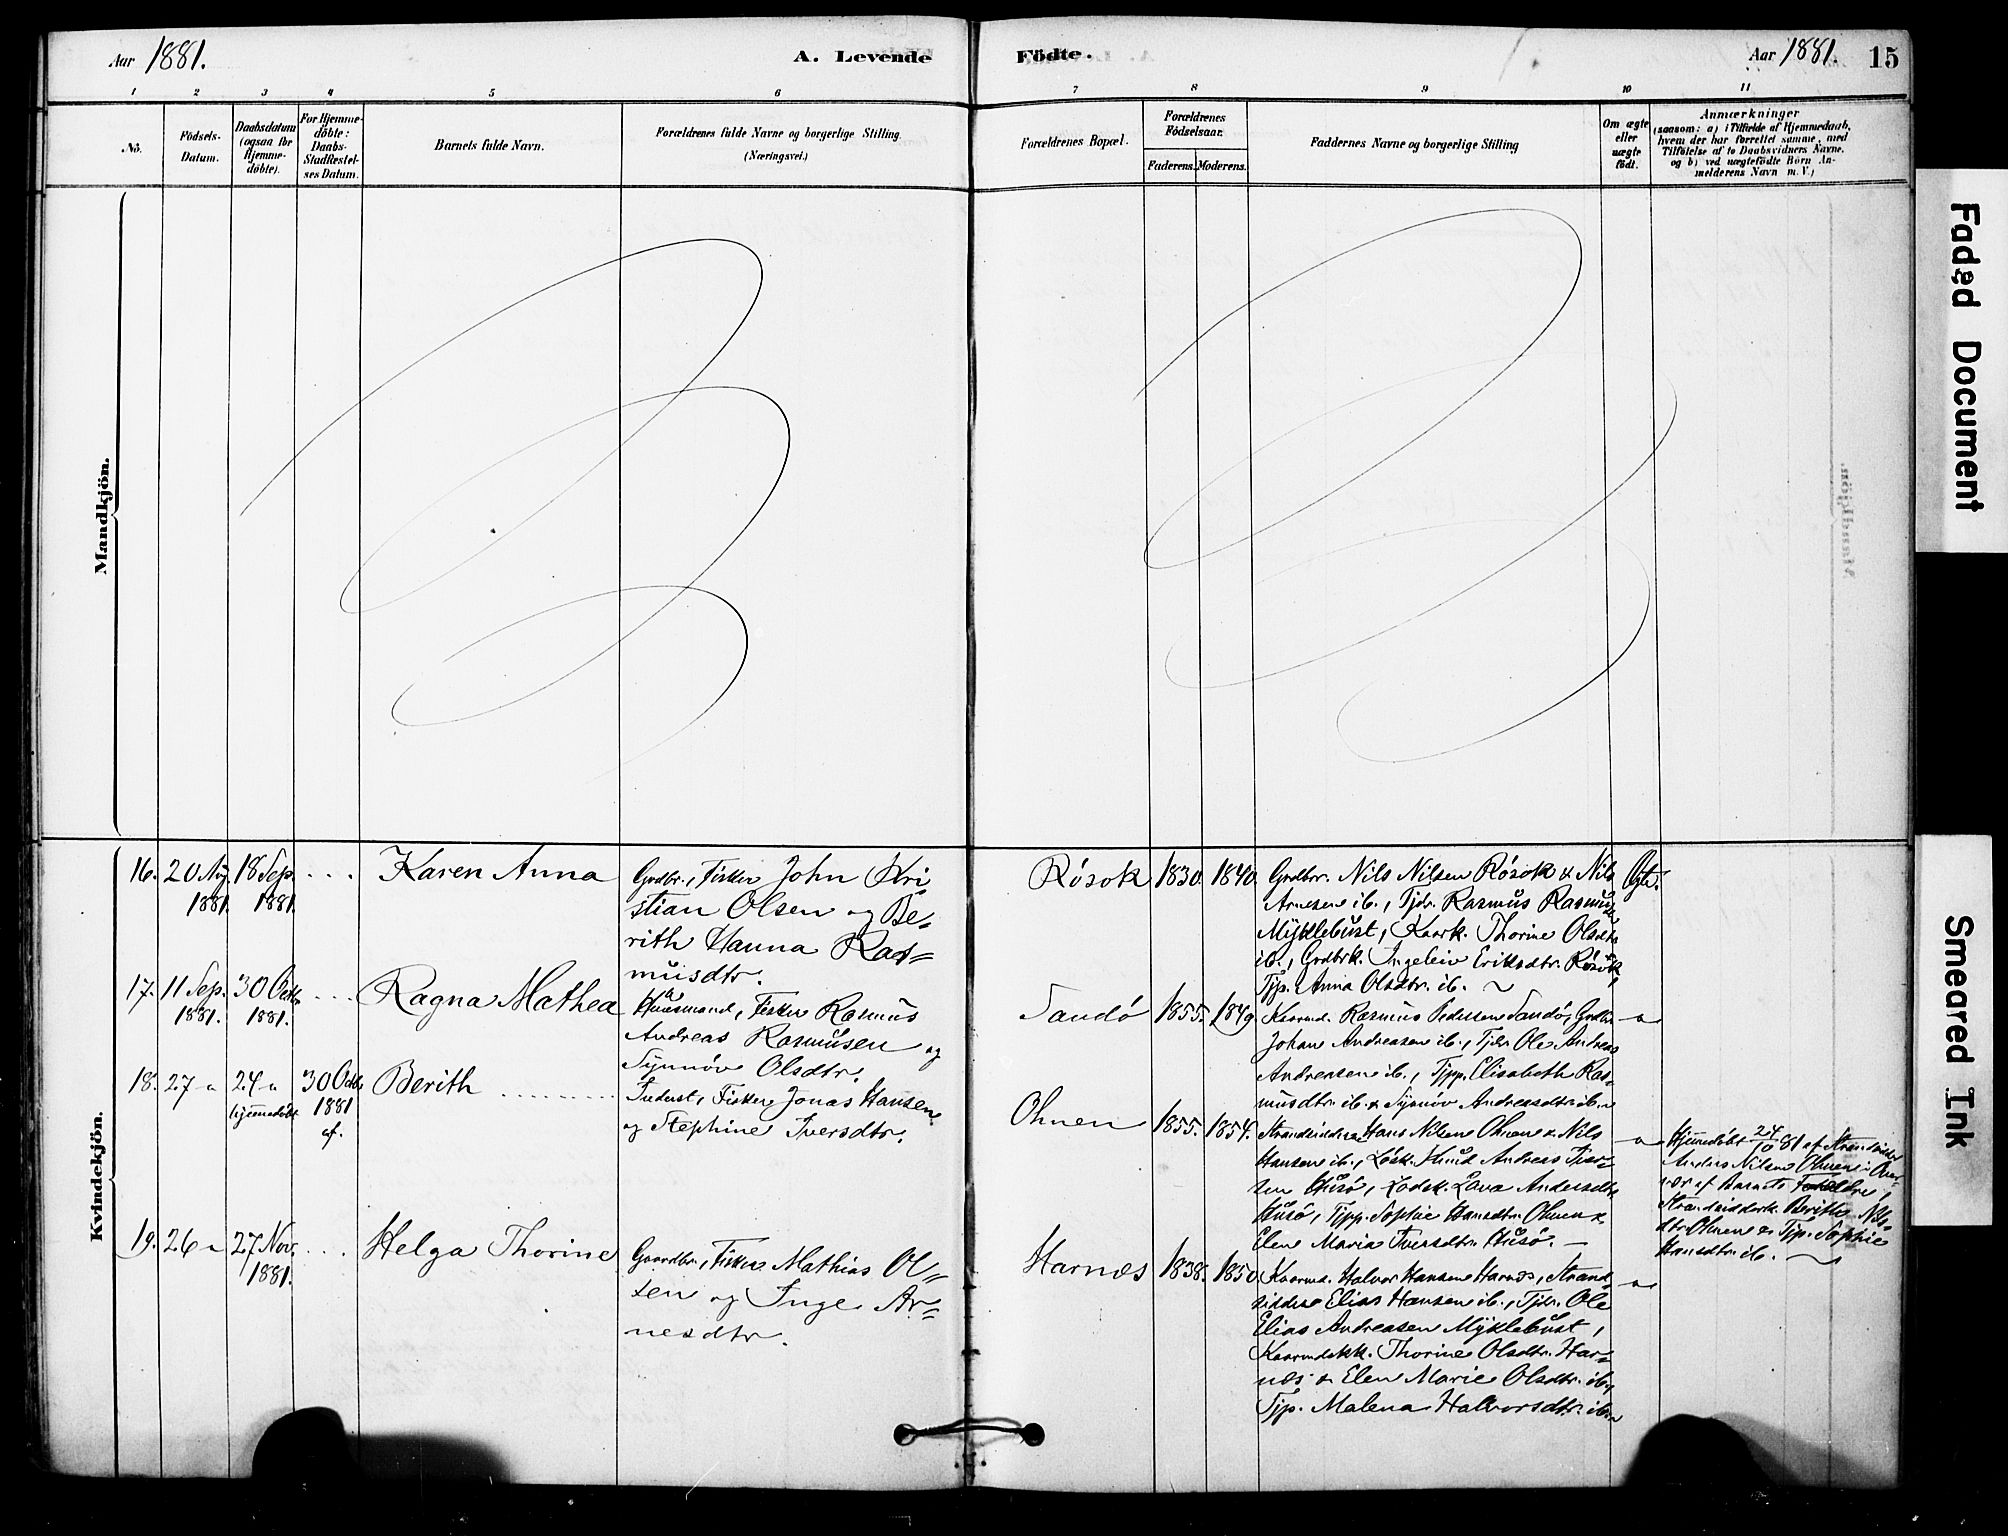 Aar 1881.
A. Levende
Födte.
Aar 1881.
15
1 2 3 4 5 6 7 8 9 10 11
No.
Födsels-
Datum.
Daabsdatum
(ogsaa for
Hjemme-
døbte).
For Hjemme-
døbte:
Daabs-
Stadfæstel-
ses Datum.
Barnets fulde Navn.
Forældrenes fulde Navne og borgerlige Stilling
(Næringsvei.)
Forældrenes Bopæl.
Forældrenes
Födselsaar.
Faderens.
Moderens.
Faddernes Navne og borgerlige Stilling
Om ægte
eller
uægte
födt.
Anmærkninger
(saasom: a) i Tilfælde af Hjemmedaab,
hvem der har forrettet samme, med
Tilföielse af to Daabsvidners Navne,
og b) ved uægtefödte Börn An-
melderens Navn m. V.)
Mandkjön.
Kvindekjön.
16.
20 Aug
1881.
18 Sep.
1881.
...
Karen Anna
Grdbr., Fisker John Kri-
stian Olsen og Be-
rith Hanna Ras-
musdtr.
Rösok
1830.
1840.
Grdbr. Nils Nilsen Rösok & Nils
Arnesen ib., Tjdr. Rasmus Rasmus
Myklebust, Kaark. Thorine Olsdtr
ib., Grdbrk. Ingeleiv Eriksdtr. Rösok,
Tjp. Anna Olsdtr. ib.
Ægte.
17.
11 Sep.
1881.
30 Octr
1881.
...
Ragna Mathea
Huusmand, Fisker Rasmus
Andreas Rasmusen og
Synnöv Olsdtr.
Sandö
1855.
1849.
Kaarmd. Rasmus Pedersen Sandö, Grdbr
Johan Andreasen ib., Tjdr. Ole Andreas
Andreasen ib., Tjpp. Elisabeth Ras-
musdtr. ib. & Synnöv Andreasdtr. ib.
18.
27
24
hjemmedöbt
30 Octr
1881
Berith
Inderst, Fisker Jonas Hansen
og Stephine Iversdtr.
Ohnen
1855.
1854.
Strandsidder Hans Nilsen Ohnen & Nils
Hansen ib., Lösk. Knud Andreas Iver-
sen Husö, Lodsk. Lava Andersdtr.
Husö, Tjpp. Sophie Hansdtr. Ohnen &
Elen Maria Iversdtr. Husö.
Hjemmedöbt 24/10 81 af Strandsidder
Anders Nilsen Ohnen i Over-
vær af Barnets Forældre,
Strandsidderk. Berithe Nils-
dtr. Ohnen & Tjp. Sophie
Hansdtr. ib.
19.
26
27 Nov.
1881.
...
Helga Thorine
Gaardbr., Fisker Mathias Ol-
sen og Inge Ar-
nesdtr.
Harnæs
1838.
1850.
Kaarmd. Halvor Hansen Harnæs, Strand-
sidder Elias Hansen ib., Tjdr. Ole
Elias Andreasen Myklebust,
Kaarmdskk. Thorine Olsdtr. Har-
næs & Elen Marie Olsdtr. ib.,
Tjp. Malena Halvorsdtr. ib.
Faded Document
Smeared Ink